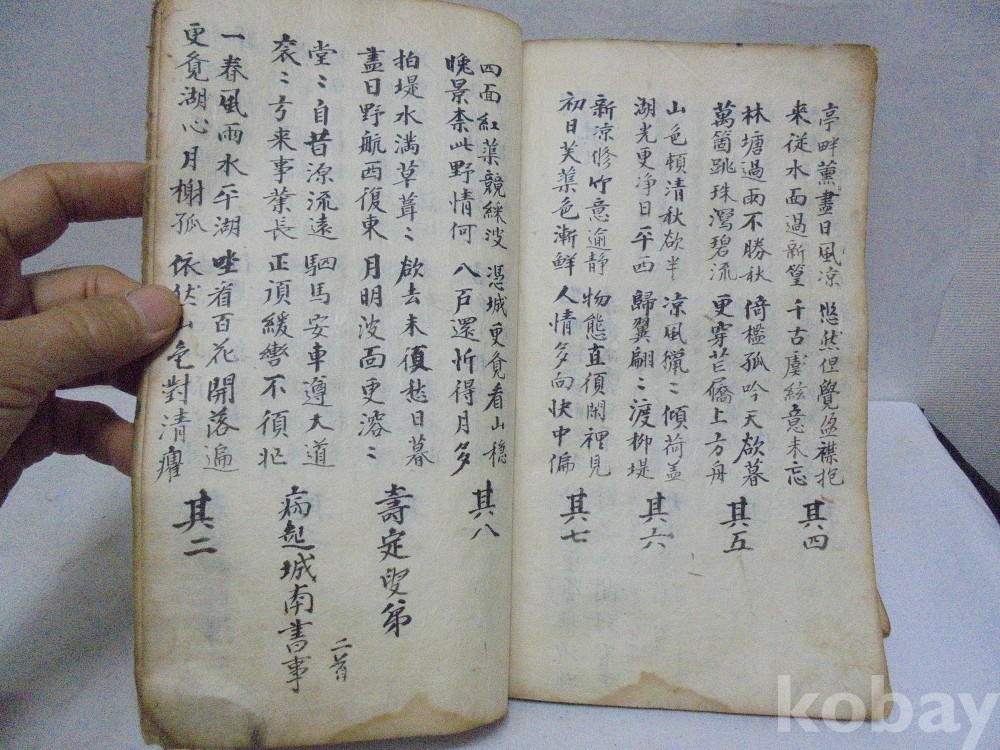 亭畔薰盡日風凉 悠然但覺盈襟抱
来從水面過新篁 千古塵絃意未忘
其四
林塘過雨不勝秋 倚檻孤吟天欲暮
萬箇跳珠瀉碧流 更穿芒屩上方舟
其五
山色頓清秋欲半 凉風獵〻傾荷盖
湖光更净日平西 歸翼翩〻渡柳堤
其六
新凉修竹意逾静 物態直須閑裡見
初日芙蕖色漸鮮 人情多向快中偏
其七
四面紅蕖競綠波 憑城更覓看山穩
晚景柰此野情何 八戶還忻得月多
其八
拍堤水滿草茸〻 欲去未須愁日暮
盡日野航西復東 月明波面更溶〻
壽定叟弟
堂〻自昔源流遠 駟馬安車遵大道
衮〻方来事業長 正須緩轡不須忙
病起城南書事 二首
一春風雨水平湖 坐看百花開落遍
更覓湖心月榭孤 依然山色對清癯
其二
kobay